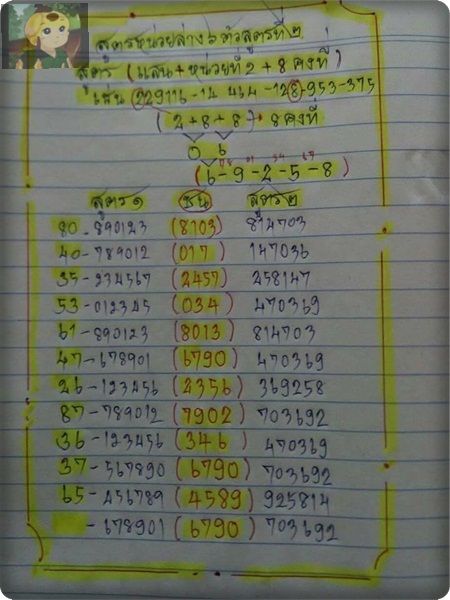 สูตรหน่วยล่าง ๖ ตัวสูตรที่ ๒
สูตร (แสน+หน่วยที่ 2 + 8 คงที่)
เช่น 229116-14 434 -128-953-375
(2+8+8) + 8 คงที่
0 6
(6-9-2-5-8)
สูตร๑ ชน สูตร๒
80-890123 (8103) 814703
40-789012 (017) 147036
35-234567 (2457) 258147
53-012345 (034) 470369
61-890123 (8013) 814703
47-678901 (6790) 470369
26-123456 (2356) 369258
87-789012 (7902) 703692
36-123456 (346) 470369
37-567890 (6790) 703692
65-456789 (4589) 925814
-678901 (6790) 703692